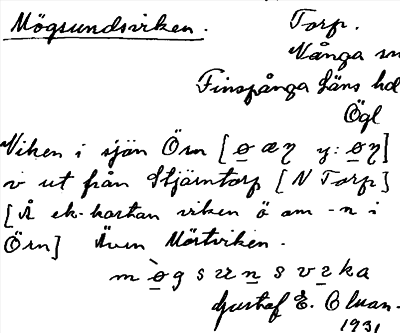 Mögsundsviken. Torp.
Vånga sn
Finspånga läns hd
Ögl
Viken i sjön Örn [ o æ η y: o η ]
v ut från Stjärntorp [ N Torp ]
[ Å ek. kartan viken ö om -n i
Örn ] Även Mörtviken.
m ò g s u n s v ɪ k a
Gustaf E.
1931